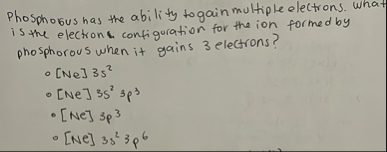 Phosphorus has the ability to gain multiple electrons. what
is the electron configuration for the ion formed by
phosphorous when it gains 3 electrons?
[Ne] 3s²
[Ne] 3s² 3p³
[Ne] 3p³
[Ne] 3s² 3p⁶